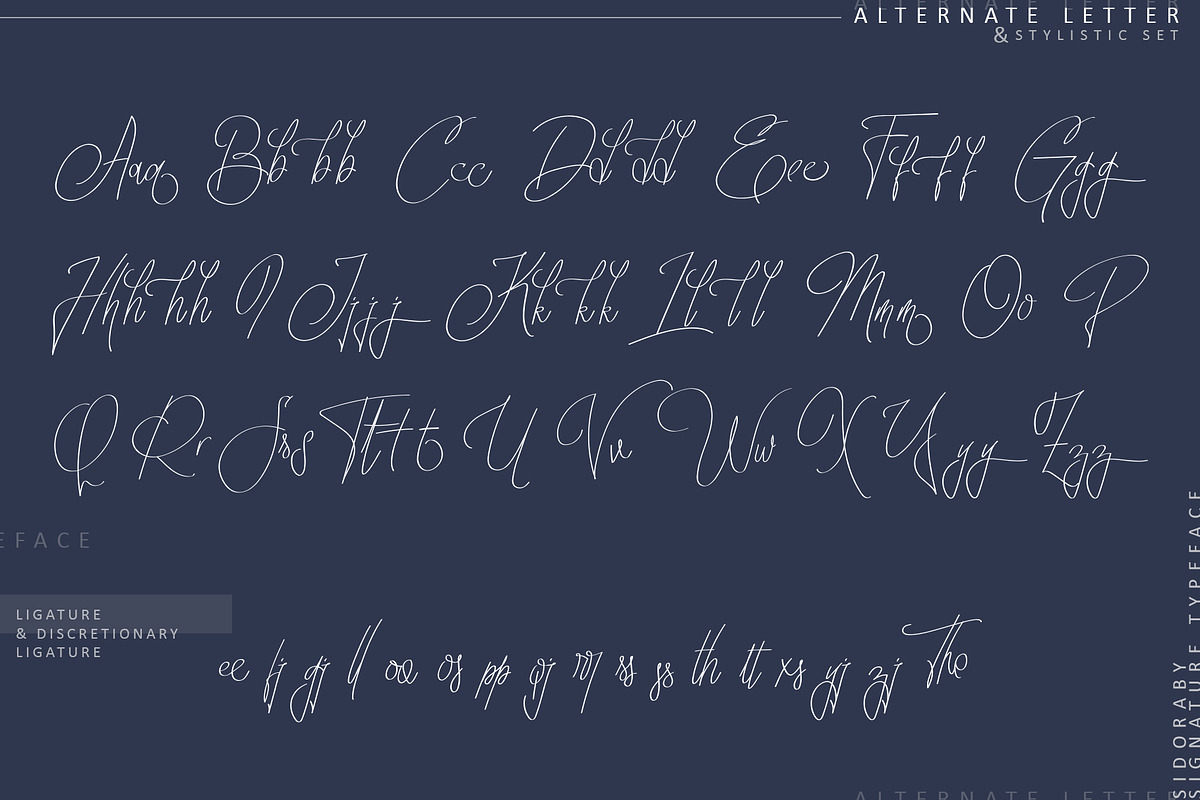 ALTERNATE LETTER
& STYLISTIC SET
Aaa Bbbb Ccc Dddd Eee Ffff Ggg
Hhhhh I Jjjj Kkkk Llll Mmm Oo P
Q Rr Sss Tttt U Vv Ww X Yyy Zzz
EFACE
LIGATURE
& DISCRETIONARY
LIGATURE
ee fj gj ll oa os pp qj rr rs ss th tt xs yj zj The
SIDORABY
SIGNATURE TYPEFACE
ALTERNATE LETTER